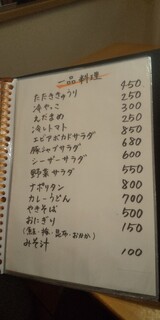 一品料理
たたききゅうり 450
冷やっこ 250
えだまめ 300
冷しトマト 250
エビアボカドサラダ 850
豚シャブサラダ 680
シーザーサラダ 600
野菜サラダ 550
ナポリタン 800
カレーうどん 700
やきそば 500
おにぎり 150
(鮭・梅・昆布・おかか)
みそ汁 100